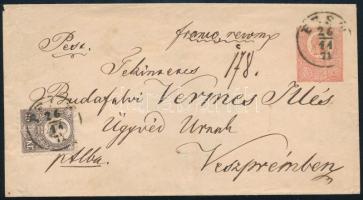 Pest.
franco recom
178.
Tekintetes
Budafalvi Vermes Illés
Ügyvéd Urnak
p Alba.
Veszprémben
26
11
71
26
11
71